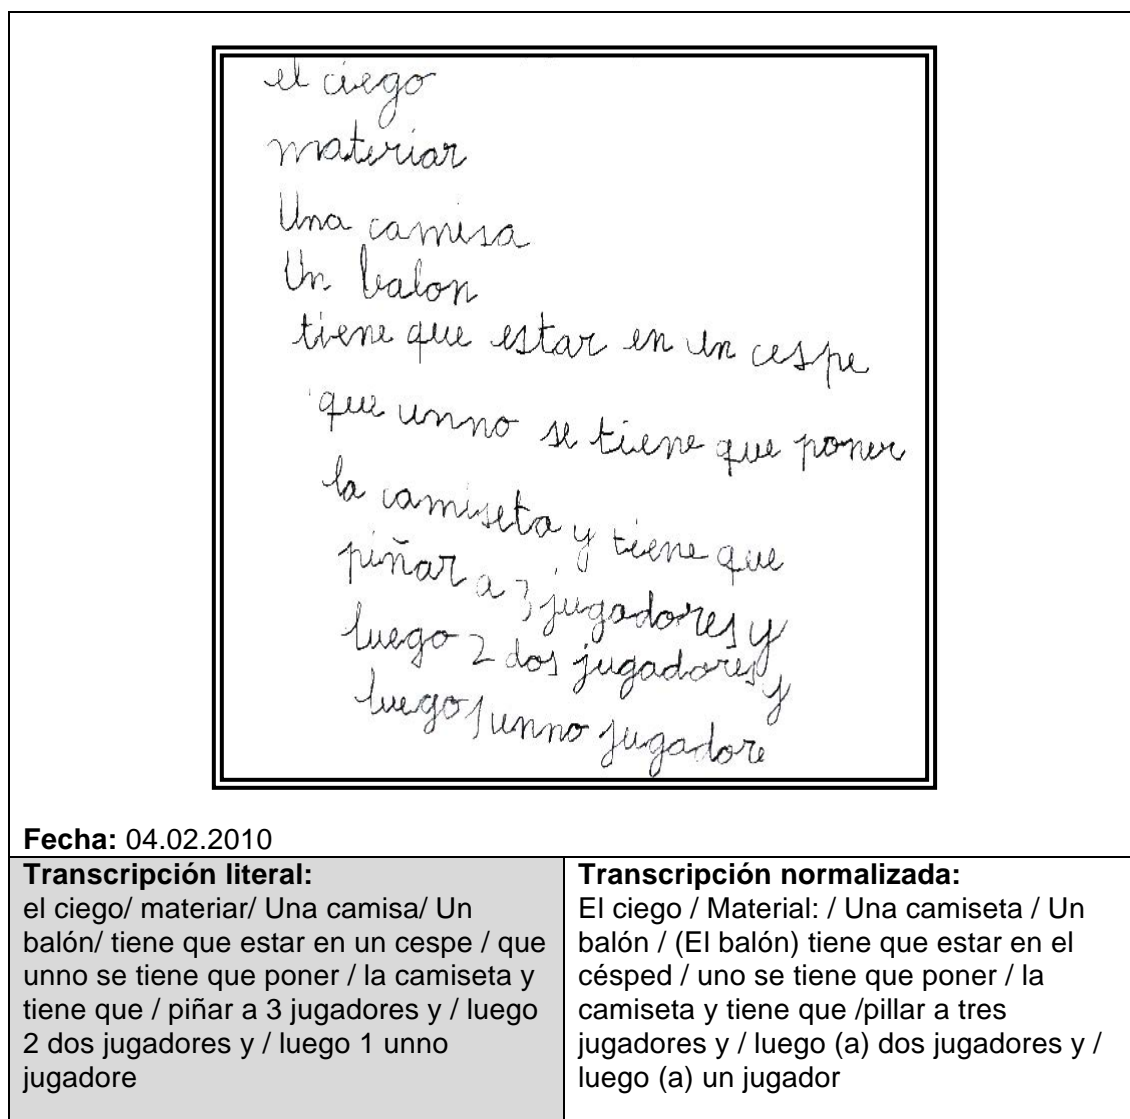 el ciego
materiar
Una camisa
Un balon
tiene que estar en un cespe
que unno se tiene que poner
la camiseta y tiene que
piñar a 3 jugadores y
luego 2 dos jugadores y
luego 1 unno jugadore
Fecha: 04.02.2010
Transcripción literal:
el ciego/ materiar/ Una camisa/ Un
balón/ tiene que estar en un cespe / que
unno se tiene que poner / la camiseta y
tiene que / piñar a 3 jugadores y / luego
2 dos jugadores y / luego 1 unno
jugadore
Transcripción normalizada:
El ciego / Material: / Una camiseta / Un
balón / (El balón) tiene que estar en el
césped / uno se tiene que poner / la
camiseta y tiene que /pillar a tres
jugadores y / luego (a) dos jugadores y /
luego (a) un jugador